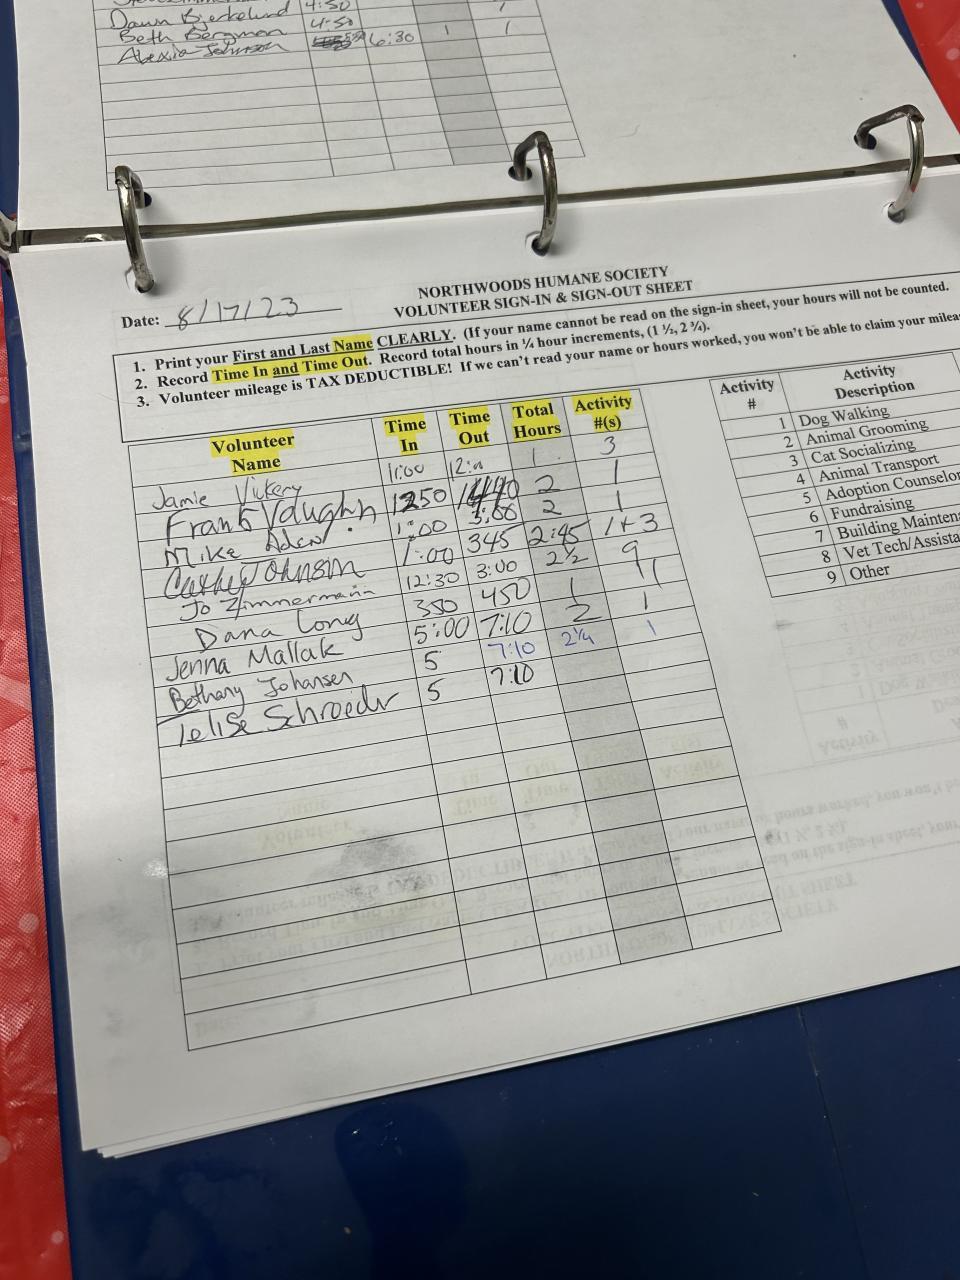 Dawn Bjorklund 4:50 1
Beth Bergman 4:50
Alexia Johnson 6:30 1 1
NORTHWOODS HUMANE SOCIETY
VOLUNTEER SIGN-IN & SIGN-OUT SHEET
Date: 8/17/23
1. Print your First and Last Name CLEARLY. (If your name cannot be read on the sign-in sheet, your hours will not be counted.
2. Record Time In and Time Out. Record total hours in ¼ hour increments, (1 ½, 2 ¾).
3. Volunteer mileage is TAX DEDUCTIBLE! If we can't read your name or hours worked, you won't be able to claim your
Volunteer Name Time In Time Out Total Hours Activity #(s)
Jamie Vickery 11:00 1 3
Frank Vaughn 1250 2 1
Mike 1:00 3:00 2 1
Cathy Johnson 1:00 345 2:45 1+3
Jo Zimmermann 12:30 3:00 2½ 9
Dana Long 350 450 1 1
Jenna Mallak 5:00 7:10 2 1
Bethany Johansen 5 7:10 2¼ 1
Schroeder 5 7:10
Activity # Activity Description
1 Dog Walking
2 Animal Grooming
3 Cat Socializing
4 Animal Transport
5 Adoption
6 Fundraising
7 Building
8 Vet
9 Other